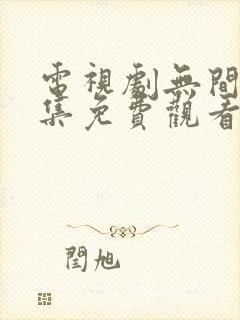 電視劇無間
集免費觀看
閆旭